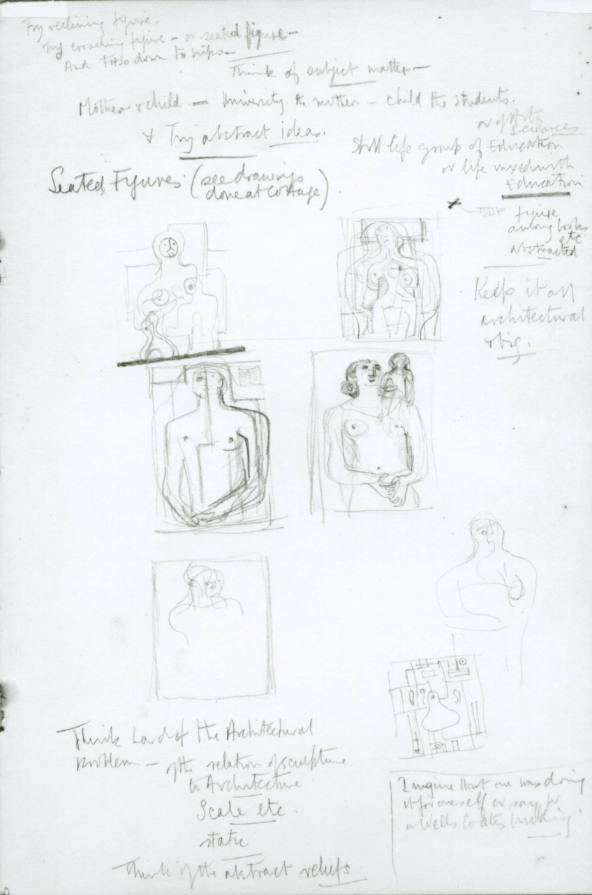 Try reclining figure.
Try crouching figure – or seated figure –
And torso down to hips –
Think of subject matter –
Mother & child – University the mother – child the students.
& Try abstract ideas.
or of Arts
Sciences
Still life group of Education
or life mixed with
Education
Seated Figures (see drawings
done at Cottage)
figure
among books
etc
abstracted
Keep it all
architectural
& big.
Think hard of the Architectural
problem – of the relation of sculpture
to Architecture
Scale etc.
static
Think of the abstract reliefs
Imagine that one was doing
it for oneself or say for
a Wells Coates building